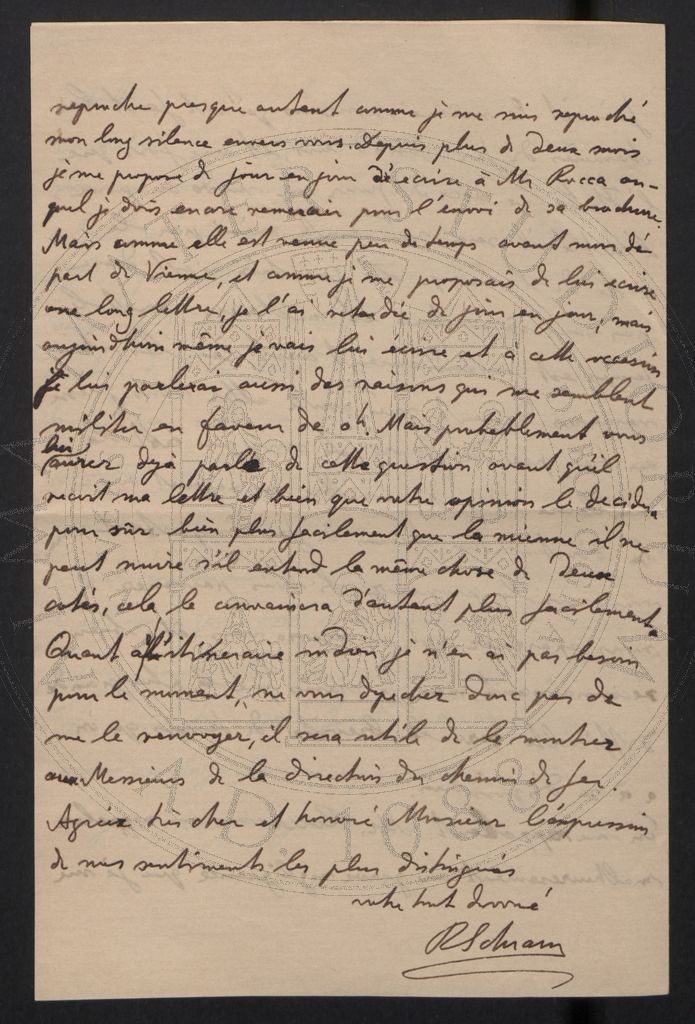 reproche presque autant comme je me suis reproché
mon long silence envers vous. Depuis plus de deux mois
je me propose de jour en jour d'écrire à Mr Rocca au-
quel je dois encore remercier pour l'envoi de sa brochure.
Mais comme elle est venue peu de temps avant mon dé
part de Vienne, et comme je me proposais de lui ecrire
une long lettre, je l'ai retardée de jour en jour, mais
aujourdhui même je vais lui écrire et à cette occasion
je lui parlerai aussi des raisons qui me semblent
militer en faveur de 0h. Mais probablement vous
lui
aurez dejà parlé de cette question avant qu'il
recoit ma lettre et bien que votre opinion le decidera
pour sûr bien plus facilement que la mienne il ne
peut nuire s'il entend la même chose de deux
cotés, cela le convaincra d'autant plus facilement.
Quant à l'itineraire indien je n'en ai pas besoin
pour le moment, ne vous dépechez donc pas de
me le renvoyer, il sera utile de le montrer
aux Messieurs de la direction du chemin de fer.
Agréez très cher et honoré Monsieur l'expression
de mes sentiments les plus distingués
votre tout devoué
RSchram